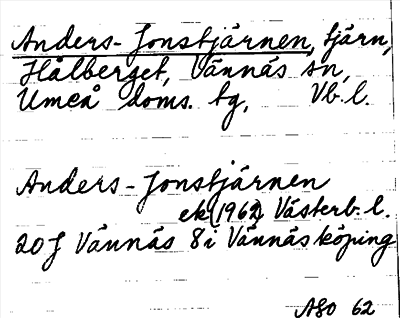 Anders-Jonstjärnen, tjärn,
Hålberget, Vännäs sn,
Umeå doms. tg, Vb. l.
Anders-Jonstjärnen
ek (1962) Västerb. l.
20J Vännäs 8i Vännäsköping
ASO 62